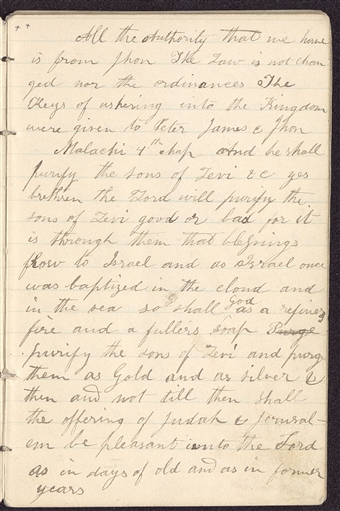 ++
All the Authority that we have
is from Jhon The Law is not chan
ged nor the ordinances The
Keys of ushering into the Kingdom
were given to Peter James & Jhon
Malachi 4th chap And he shall
purify the sons of Levi &c yes
brethren the Lord will purify the
sons of Levi good or bad for it
is through them that blessings
flow to Israel and as Israel once
was baptized in the cloud and
in the sea so shall God as a refiners
fire and a fullers soap Purge
purify the sons of Levi and purg
them as Gold and as silver &
then and not till then shall
the offering of Judah & Jerusal-
em be pleasant unto the Lord
as in days of old and as in former
years